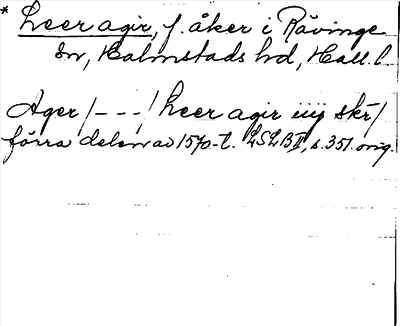 * Leer agir, f. åker i Rävinge
sn, Halmstads hd, Hall. l.
Ager /---/ Leer agir iiij skr /
förra delen av 1570-t. LSLB II, s. 351. orig.